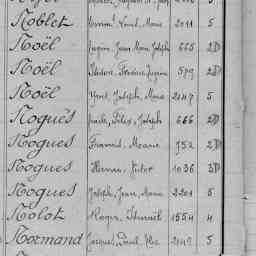 Noblet Vincent, Marie 2011 5
Noël Eugène, Jean Marie Joseph 665 2D
Noël Isidore, Florian, Eugène 579 2D
Noël Yves, Joseph, Marie 2047 5
Noguès Félix, Joseph 666 2D
Nogues Francis, Marie 752 2D
Nogues Pierre, Victor 1036 3D
Nogues Joseph, Jean, Marie 2201 5
Nolot Roger, Ismaël 1554 4
Normand Jacques, Paul, 2049 5